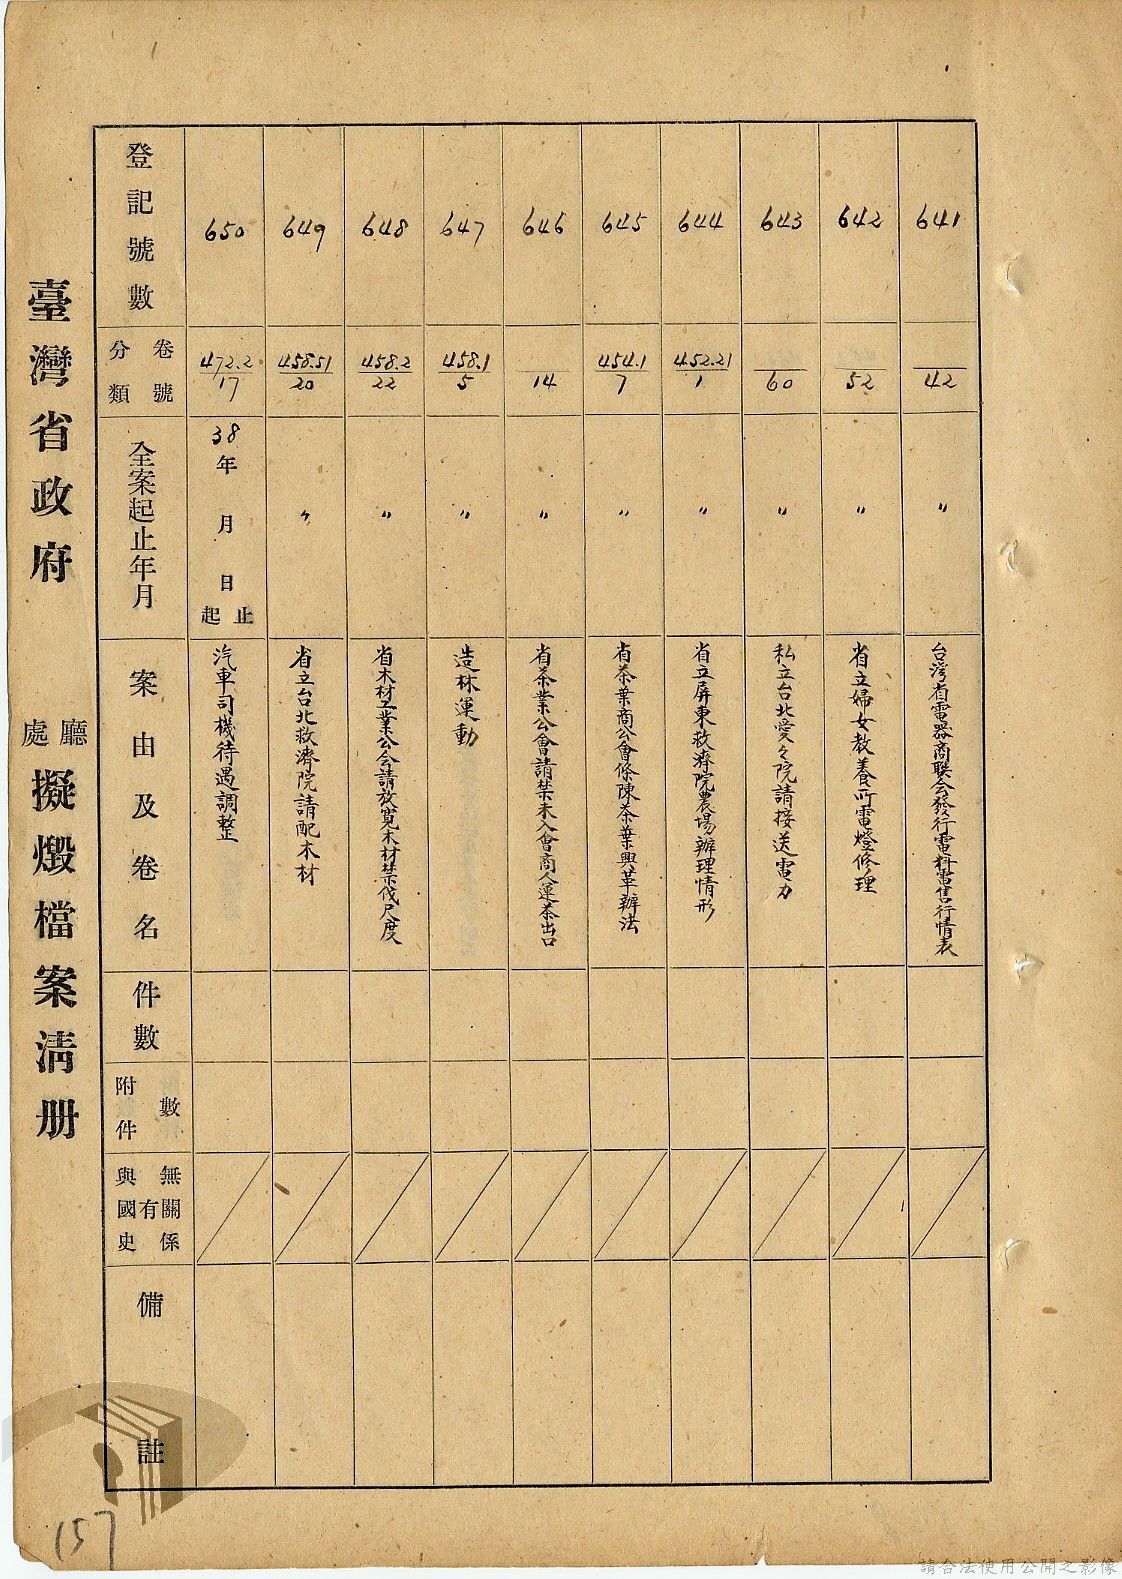 臺灣省政府 廳處 擬燬檔案清册
登記號數
650
649
648
647
646
645
644
643
642
641
分類
卷號
472.2/17
458.51/20
458.2/22
458.1/5
14
454.1/7
452.21/1
60
52
42
全案起止年月
38年 月 日起止
〃
〃
〃
〃
〃
〃
〃
〃
〃
案由及卷名
汽車司機待遇調整
省立台北救濟院請配木材
省木材工業公会請放寬木材禁伐尺度
造林運動
省茶業公會請禁未入會商人運茶出口
省茶葉商公會條陳茶葉興革辦法
省立屏東救濟院農場辦理情形
私立台北愛々院請接送電力
省立婦女教養所電燈修理
台湾省電器商联会發行電料電售行情表
件數
附件數
與國史有無關係
備註
157
請合法使用公開之影像